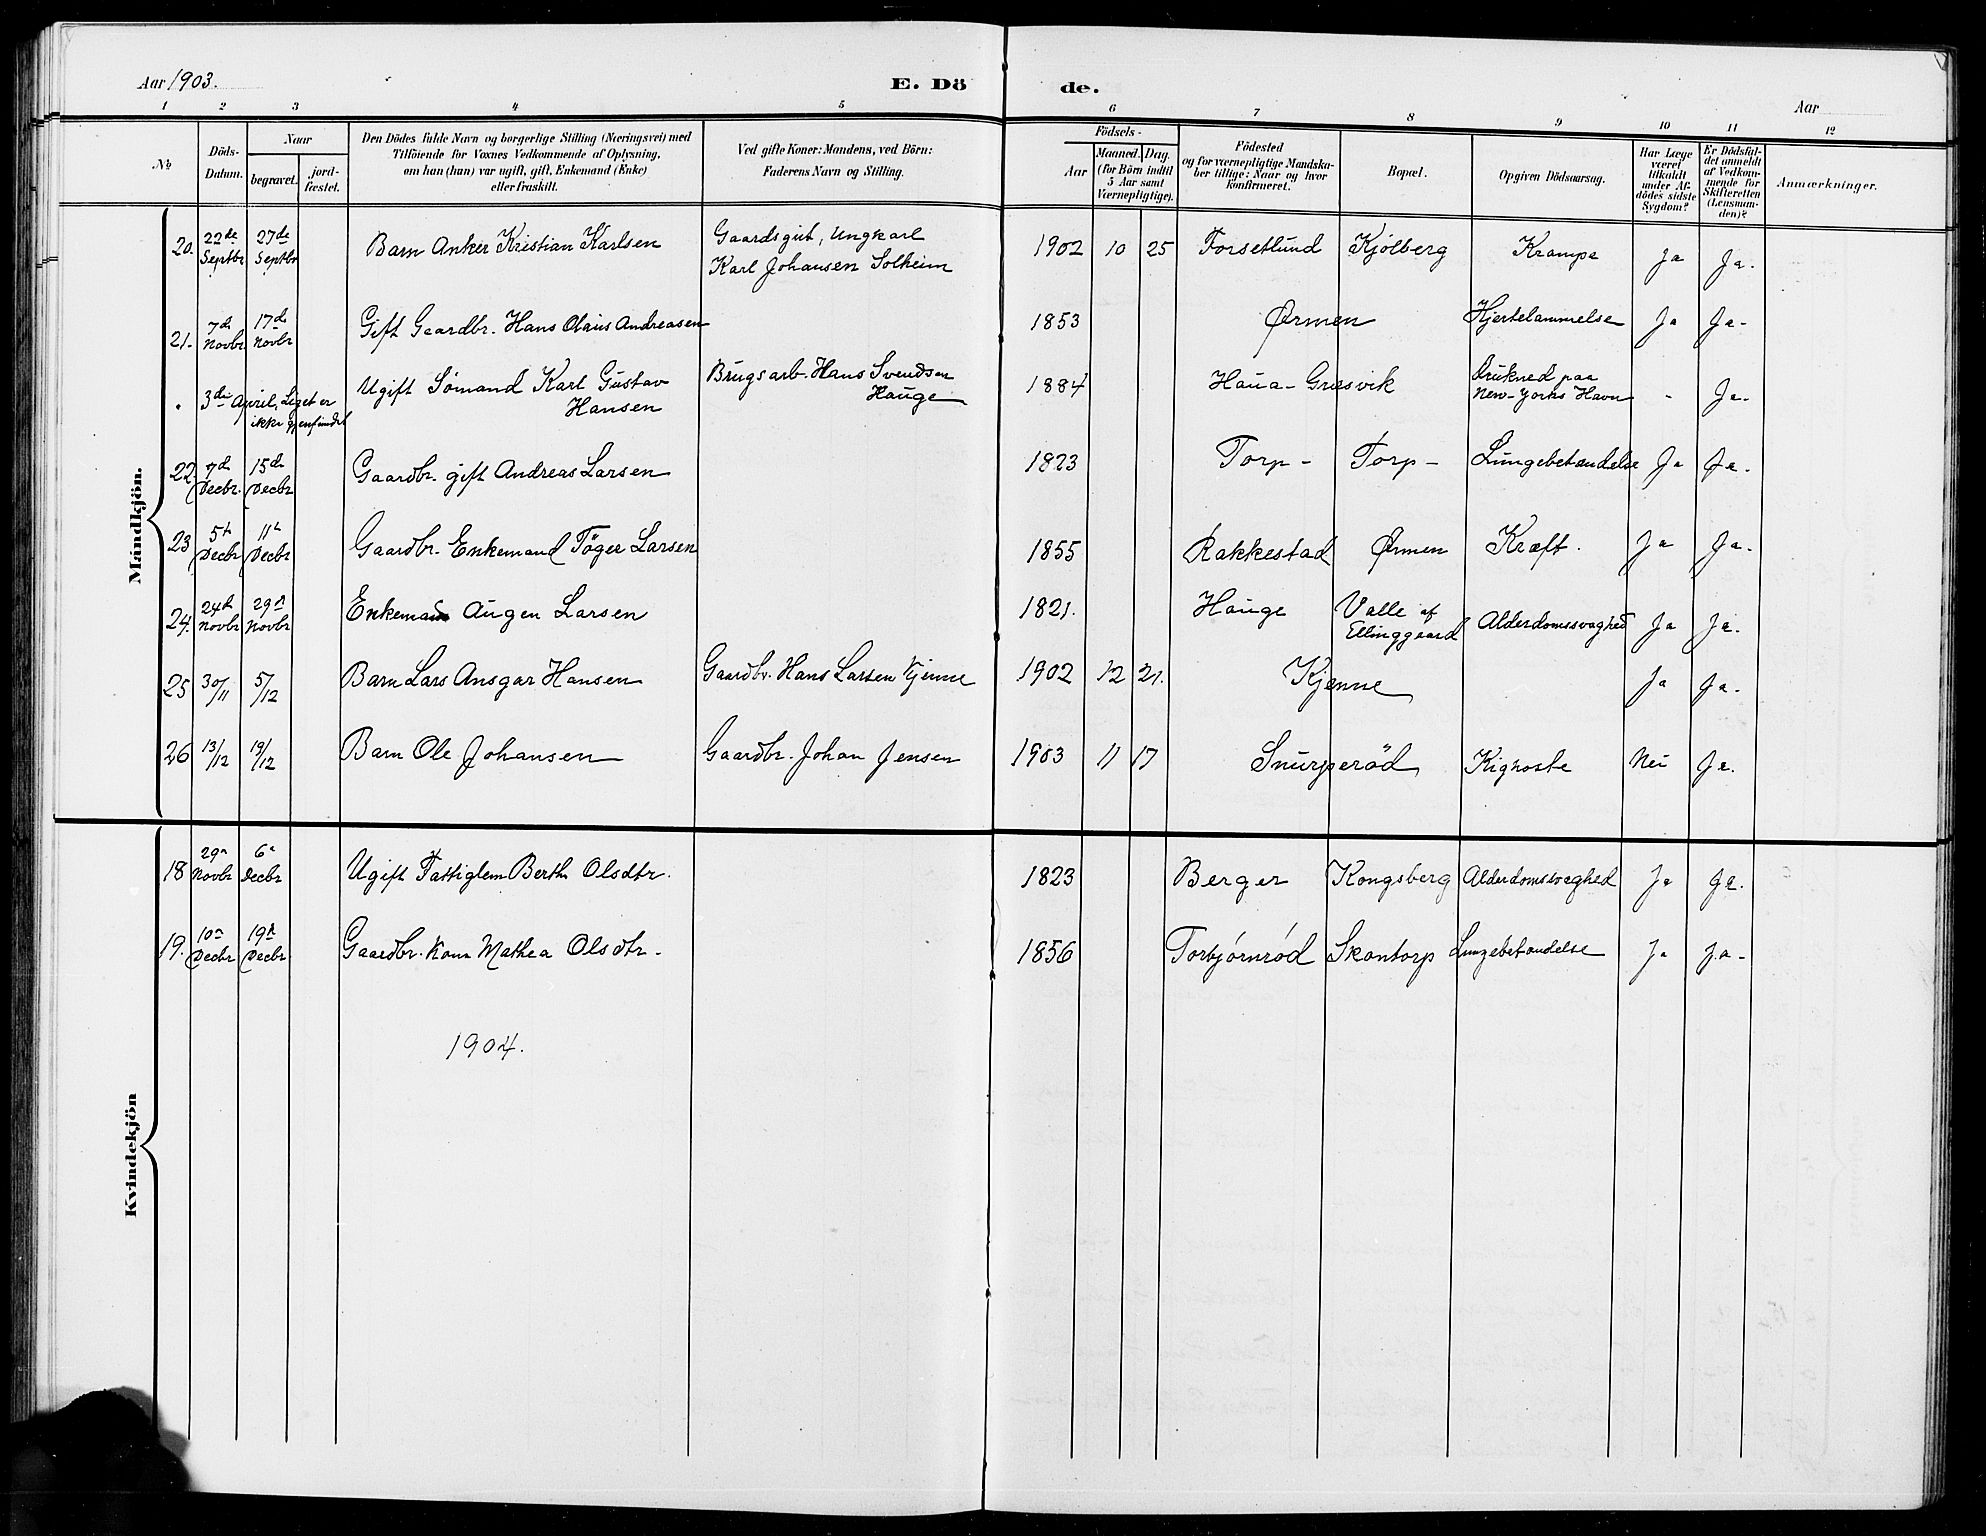 Aar 1903. E. Dö de. Aar
1 2 3 4 5 6 7 8 9 10 11 12
No Döds-Datum. Naar begravet. jord-fæstet. Den Dödes fulde Navn og borgerlige Stilling (Næringsvei) med Tilföiende for Voxnes Vedkommende af Oplysning, om han (hun) var ugift, gift, Enkemand (Enke) eller fraskilt. Ved gifte Koner: Mandens, ved Börn: Faderens Navn og Stilling. Födsels- Aar Maaned. Dag. (for Börn indtil 5 Aar samt Værnepligtige). Födested og for værnepligtige Mandskaber tillige: Naar og hvor konfirmeret. Bopæl. Opgiven Dödsaarsag. Har Læge været tilkaldt under Afdödes sidste Sygdom? Er Dödsfaldet anmeldt af Vedkommende for Skifteretten (Lensmanden)? Anmærkninger.
Mandkjön.
20. 22de Septbr 27de Septbr Barn Anker Kristian Karlsen Gaardsgut, Ungkarl Karl Johansen Solheim 1902 10 25 Forsetlund Kjölberg Krampe Ja Ja.
21. 7de Novbr. 17de Novbr Gift Gaardbr. Hans Olaus Andreasen 1853 Ørmen Hjertelammelse Ja Ja-
" 3die April, Liget er ikke gjenfundet Ugift Sömand Karl Gustav Hansen Brugsarb. Hans Svendsen Hauge 1884 Haua - Gresvik Druknet paa New-Yorks Havn - Ja-
22 7de Decbr. 15de Decbr Gaardbr. gift Andreas Larsen 1823 Torp - Torp - Lungebetændelse Ja Ja.
23 5t Decbr 11t Decbr Gaardbr. Enkemand Töger Larsen 1855 Rakkestad Ørmen Kræft. Ja Ja.
24. 24t Novbr 29n Novbr Enkemand Augen Larsen 1821. Hauge Valle af Ellinggaard Alderdomssvaghed Ja Ja.
25 30/11 5/12 Barn Lars Ansgar Hansen Gaardbr. Hans Larsen Kjenne 1902 12 21. Kjenne Ja Ja.
26 13/12 19/12 Barn Ole Johansen Gaardbr. Johan Jensen 1903 11 17 Snurperöd Kighoste Nei Ja.
Kvindekjön
18 29n Novbr 6n Decbr Ugift Fattiglem Berthe Olsdtr. 1823 Berger Kongsberg Alderdomssvaghed Ja Ja.
19. 10n Decbr 19n Decbr Gaardbr. Kone Mathea Olsdtr. 1856 Torbjørnrød Skontorp Lungebetændelse Ja Ja-
1904.